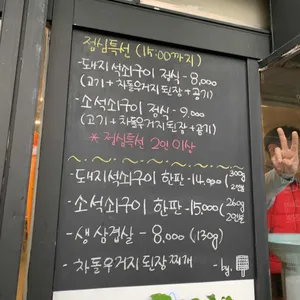 점심특선 (15:00까지)
- 돼지석쇠구이 정식 - 8,000
(고기 + 차돌우거지된장 + 공기)
- 소석쇠구이 정식 - 9,000
(고기 + 차돌우거지된장 + 공기)
* 점심특선 2인 이상
- 돼지석쇠구이 한판 - 14,000 (300g 2인분)
- 소석쇠구이 한판 - 15,000 (260g 2인분)
- 생삼겹살 - 8,000 (130g)
- 차돌우거지된장찌개 - by.